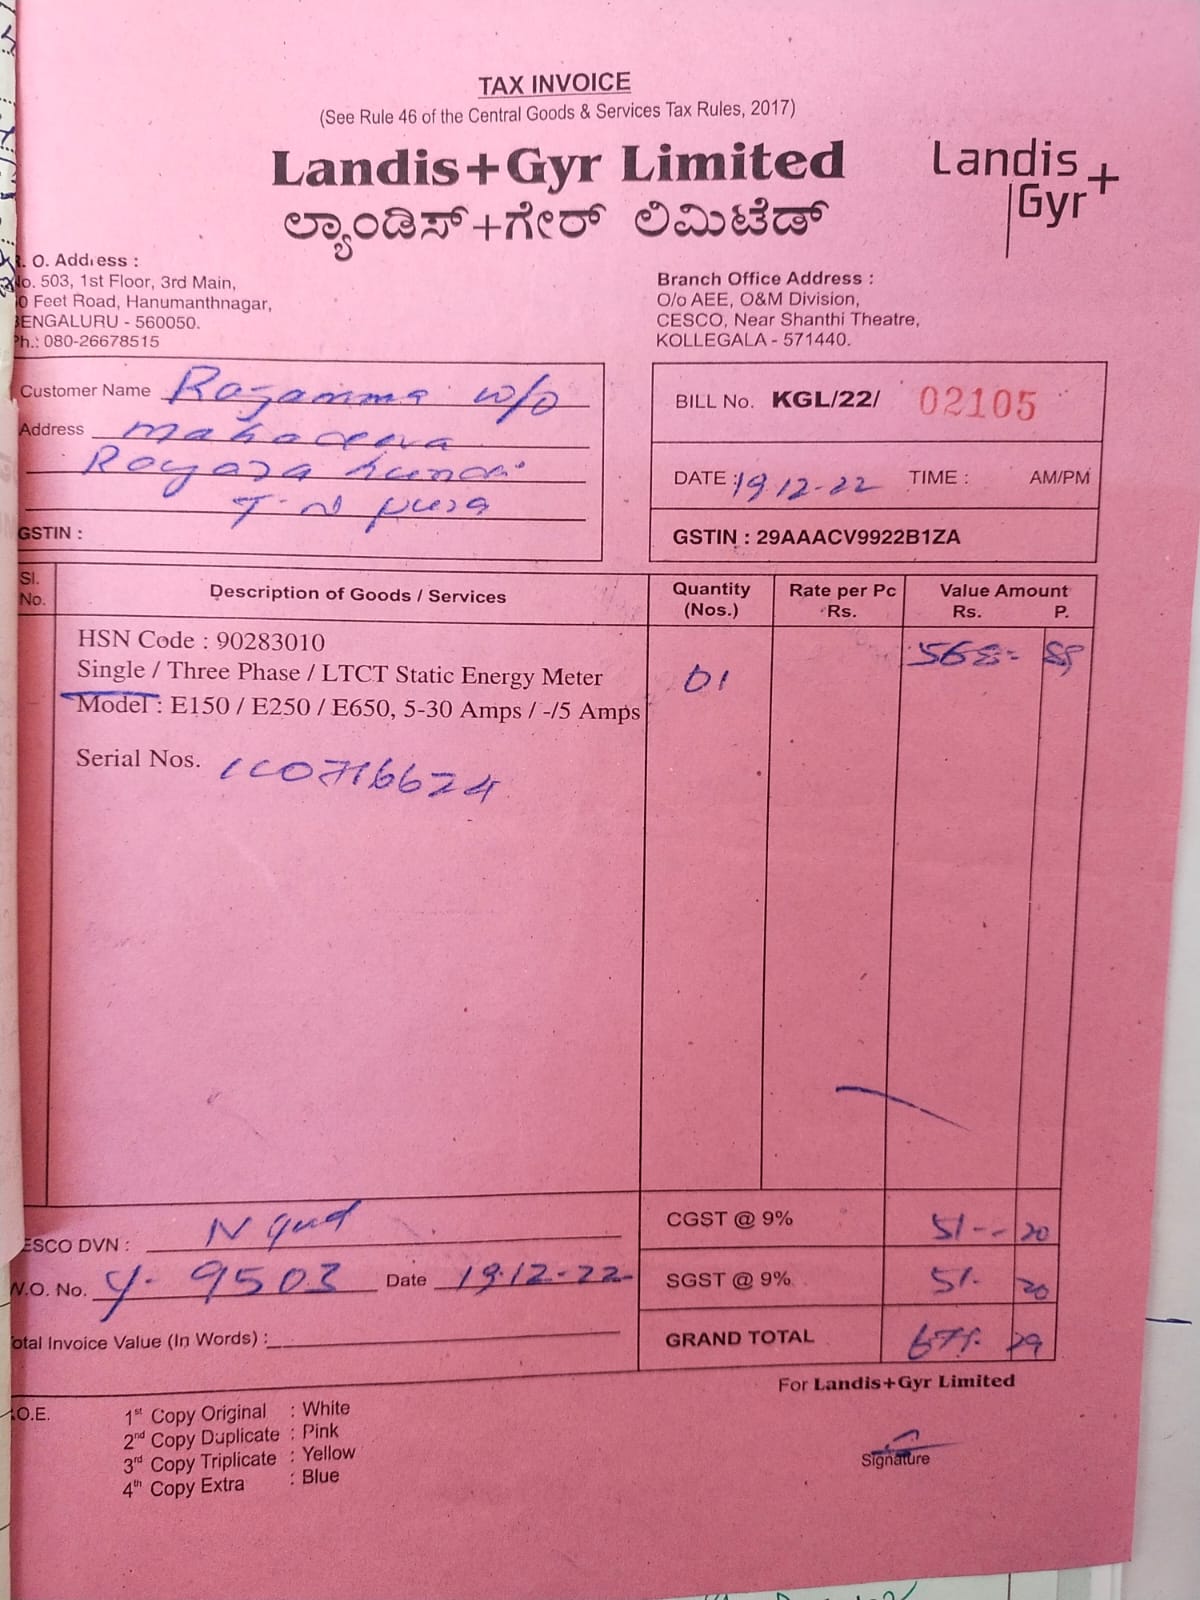 TAX INVOICE
(See Rule 46 of the Central Goods & Services Tax Rules, 2017)
Landis+Gyr Limited
ಲ್ಯಾಂಡಿಸ್+ಗೇರ್ ಲಿಮಿಟೆಡ್
Landis
Gyr+
R. O. Address :
No. 503, 1st Floor, 3rd Main,
0 Feet Road, Hanumanthnagar,
BENGALURU - 560050.
Ph.: 080-26678515
Branch Office Address :
O/o AEE, O&M Division,
CESCO, Near Shanthi Theatre,
KOLLEGALA - 571440.
Customer Name w/o
Address
T. N pura
GSTIN :
BILL No. KGL/22/ 02105
DATE : 19.12-22 TIME : AM/PM
GSTIN : 29AAACV9922B1ZA
Sl. No. Description of Goods / Services Quantity (Nos.) Rate per Pc Rs. Value Amount Rs. P.
HSN Code : 90283010
Single / Three Phase / LTCT Static Energy Meter 01
Model : E150 / E250 / E650, 5-30 Amps / -/5 Amps
Serial Nos.
ESCO DVN :
CGST @ 9% 51-- 20
W.O. No. 9503 Date 19.12-22
SGST @ 9% 51- 20
Total Invoice Value (In Words) :
GRAND TOTAL
For Landis+Gyr Limited
.O.E.
1st Copy Original : White
2nd Copy Duplicate : Pink
3rd Copy Triplicate : Yellow
4th Copy Extra : Blue
Signature